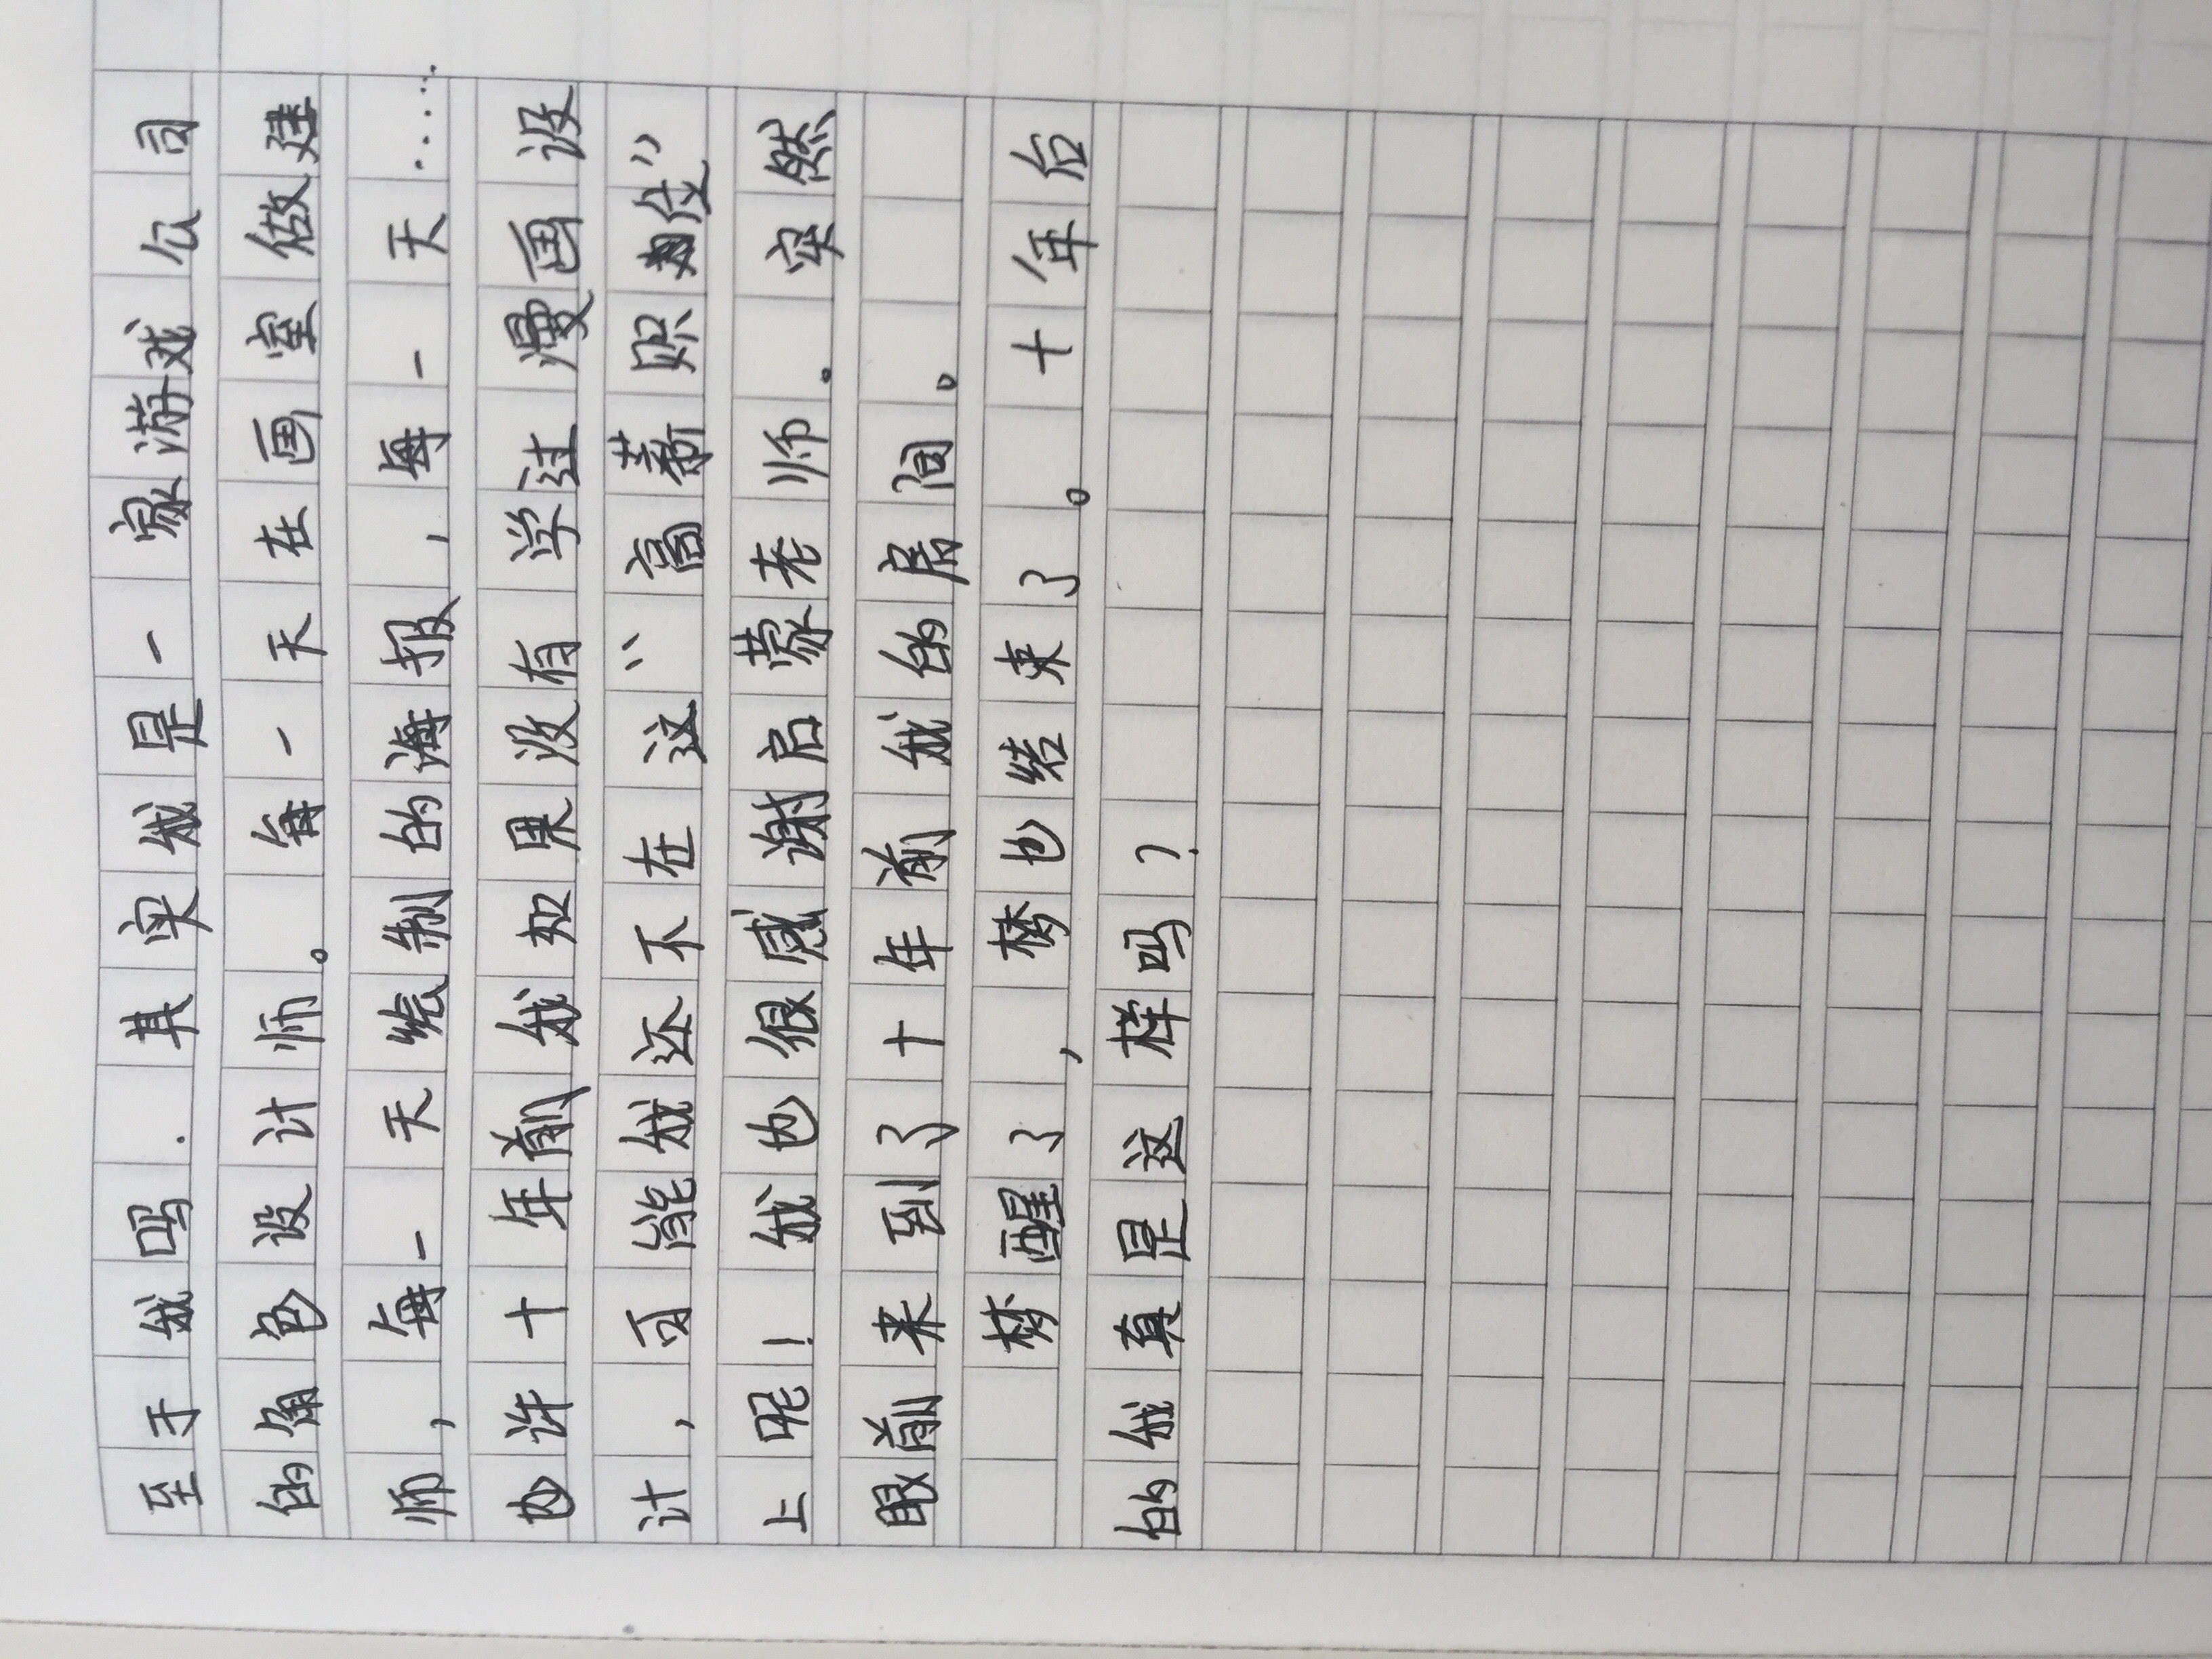 至于我吗.其实我是一家游戏公司
的角色设计师。每一天在画室做建
师,每一天绘制的海报,每一天……
也许十年前我如果没有学过漫画设
计,可能我还不在这“高薪职位”
上呢!我也很感谢启蒙老师。突然
眼前来到了十年前我的房间。
梦醒了,梦也结束了。十年后
的我真是这样吗?